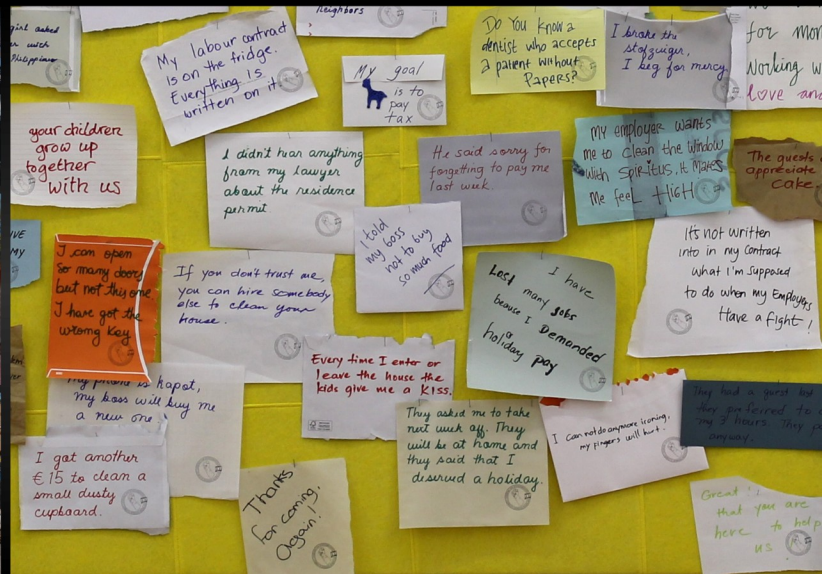 girl asked
with
Philippine
My labour contract
is on the fridge.
Everything is
written on it.
Neighbors
My goal
is to
pay
tax
Do You know a
dentist who accepts
a patient without
Papers?
I broke the
stofzuiger,
I beg for mercy
for mon
Working w
love and
your children
grow up
together
with us
I didn't hear anything
from my lawyer
about the residence
permit
He said sorry for
forgetting to pay me
last week.
My employer wants
me to clean the window
with SPIRitus, it makes
Me feel HIGH
The guests
appreciate
cake.
IVE
MY
I can open
so many doors
but not this one
I have got the
wrong key
If you don't trust me,
you can hire somebody
else to clean your
house.
I told
my boss
not to buy
so much food
I have
Lost many jobs
becouse I Demanded
a
holiday pay
It's not written
into in my contract
what I'm supposed
to do when my Employers
Have a fight!
my phone is kapot,
my boss will buy me
a new one
Every time I enter or
leave the house the
kids give me a kiss.
They asked me to take
next week off. They
will be at home and
they said that I
deserved a holiday.
I can not do anymore ironing,
my fingers will hurt.
They had a guest but
they preferred to
my 3 hours. They
anyway.
I got another
€15 to clean a
small dusty
cupboard.
Thanks
for coming.
Again!
Great!
that you are
here to help
us